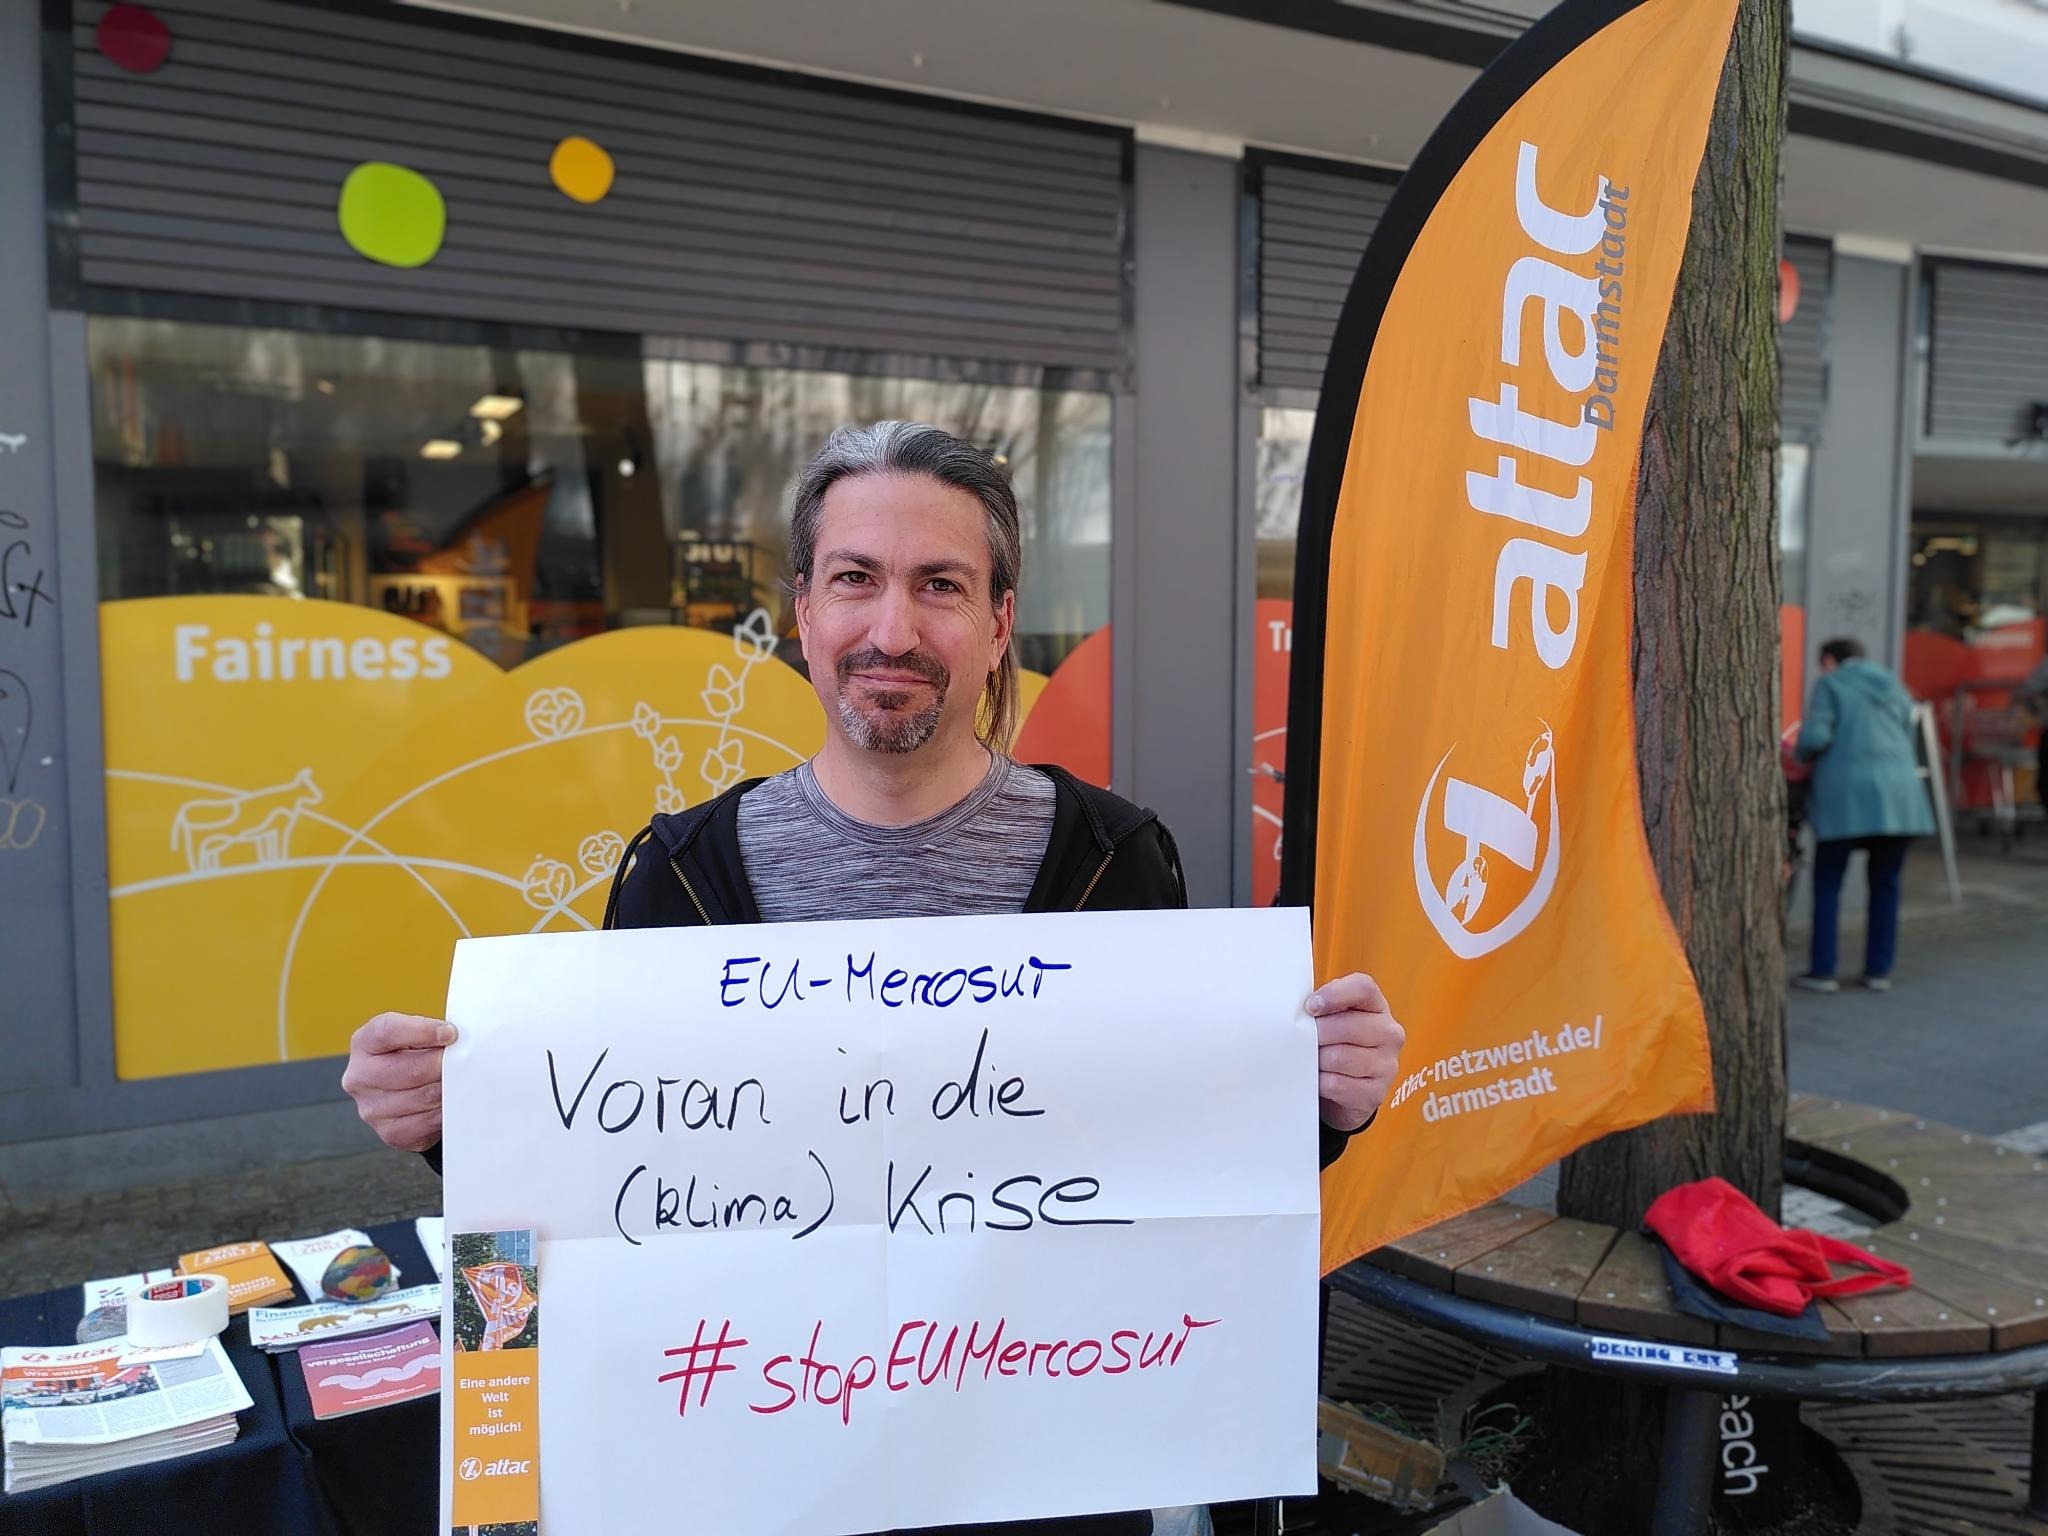 Fairness
attac
Darmstadt
attac-netzwerk.de/
darmstadt
EU-Mercosur
Voran in die
(klima) Krise
#stopEUMercosur
Eine andere
Welt
ist
möglich!
attac
attac
Wie weiter?
Finance for
vergesellschaftung
each